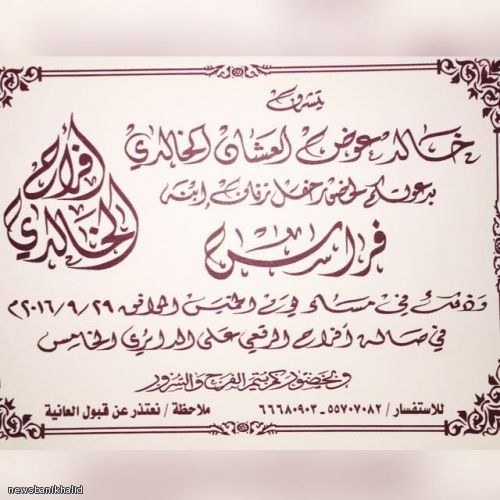 يتشرف
خالد عوض العشان الخالدي
بدعوتكم لحضور حفل زفاف إبنه
فراس
وذلك في مساء يوم الخميس الموافق ٢٠١٦/٩/٢٩م
في صالة أفراح الرقعي على الدائري الخامس
وبحضوركم يتم الفرح والسرور
للاستفسار / ٥٥٧٠٧٠٨٢ - ٦٦٦٨٠٩٠٣
ملاحظة / نعتذر عن قبول العانية
أفراح
الخالدي
newsbanikhalid